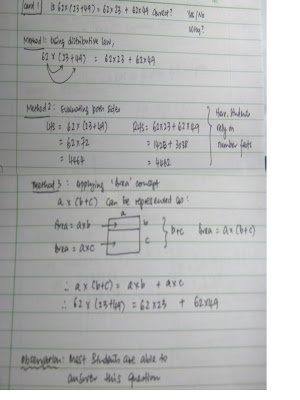 Card 1 Is 62x(23+49) = 62x23 + 62x49 Correct? Yes/No
Why?
Method 1: Using distributive law,
62 x (23+49) = 62x23 + 62x49
Method 2: Evaluating both sides
LHS = 62x(23+49) RHS = 62x23+62x49
= 62x72 = 1426 + 3038
= 4464 = 4462
Here, students
rely on
number facts
Method 3: Applying 'Area' concept
a x (b+c) can be represented as:
a
Area = axb b
Area = axc c
b+c Area = ax(b+c)
∴ a x (b+c) = axb + axc
∴ 62 x (23+49) = 62x23 + 62x49
Observation: Most students are able to
answer this question